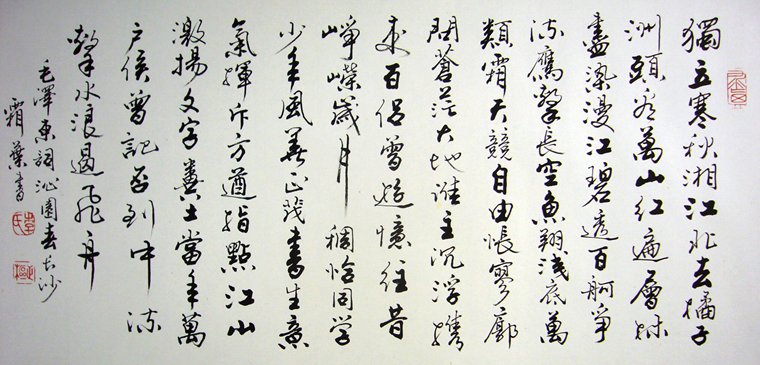 獨立寒秋湘江北去橘子
洲頭看萬山紅遍層林
盡染漫江碧透百舸爭
流鷹擊長空魚翔淺底萬
類霜天競自由悵寥廓
問蒼茫大地誰主沉浮攜
來百侶曾遊憶往昔
崢嶸歲月稠恰同学
少年風華正茂書生意
氣揮斥方遒指點江山
激揚文字糞土當年萬
户侯曾記否到中流
擊水浪遏飛舟
毛澤東詞沁園春長沙
霜葉書